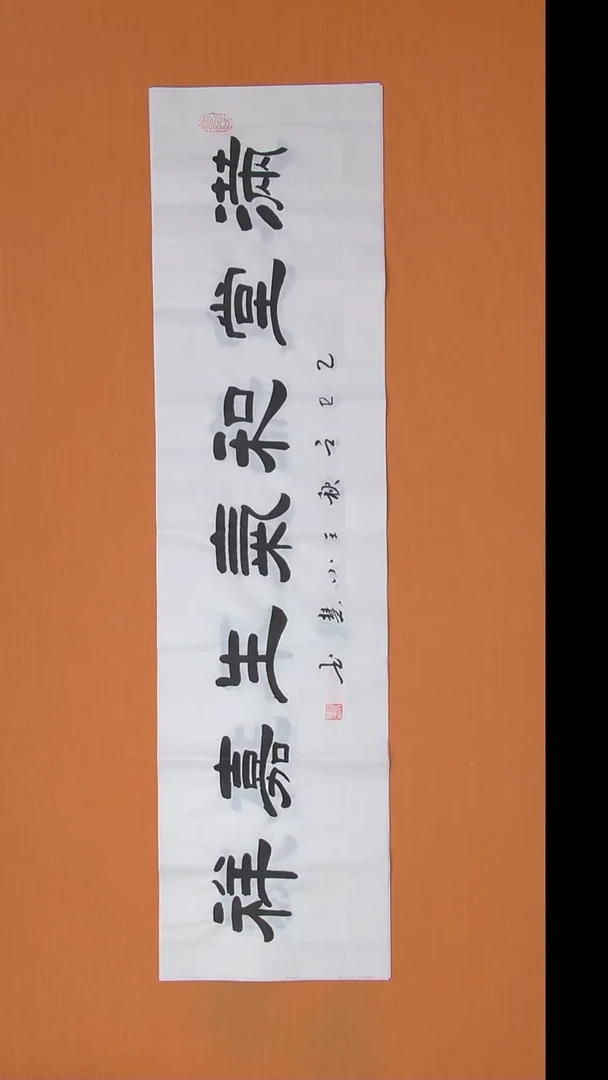 滿堂和氣生嘉祥
乙巳之秋王小慧书